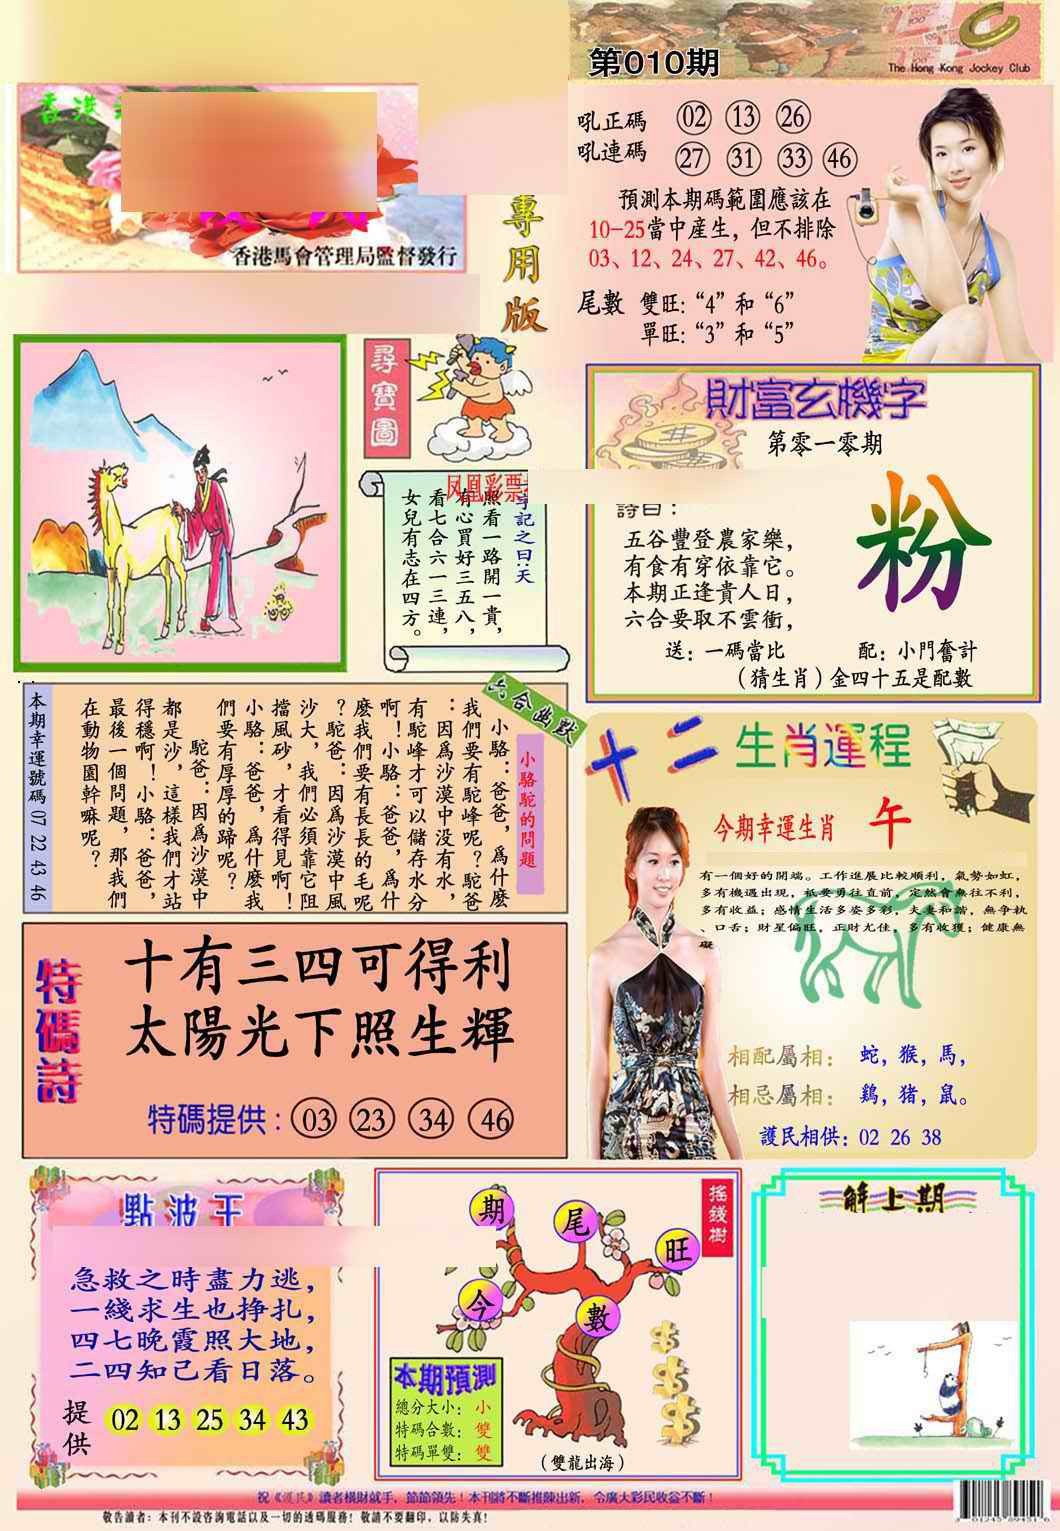 第010期
The Hong Kong Jockey Club
香港
香港馬會管理局監督發行
專用版
吼正碼 02 13 26
吼連碼 27 31 33 46
預測本期碼範圍應該在
10-25當中産生，但不排除
03、12、24、27、42、46。
尾數 雙旺：“4”和“6”
單旺：“3”和“5”
尋寶圖
凤凰彩票
字記之曰：天
照看一路開一貴，
有心買好三五八，
看七合六一三連，
女兒有志在四方。
財富玄機字
第零一零期
詩曰：
五谷豐登農家樂，
有食有穿依靠它。
本期正逢貴人日，
六合要取不雲衝，
粉
送：一碼當比 配：小門奮計
（猜生肖）金四十五是配數
六合幽默
小駱駝的問題
小駱：爸爸，爲什麼
我們要有駝峰呢？駝爸
：因爲沙漠中没有水，
有駝峰才可以儲存水分
啊！小駱：爸爸，爲什
麽我們要有長長的毛呢
？駝爸：因爲沙漠中風
沙大，我們必須靠它阻
擋風砂，才看得見啊！
小駱：爸爸，爲什麽我
們要有厚厚的蹄呢？
駝爸：因爲沙漠中
都是沙，這樣我們才站
得穩啊！小駱：爸爸，
最後一個問題，那我們
在動物園幹嘛呢？
本期幸運號碼 07 22 43 46
十二生肖運程
今期幸運生肖 午
有一個好的開端。工作進展比較順利，氣勢如虹，
多有機遇出現，祇要勇往直前，定然會無往不利，
多有收益；感情生活多姿多彩，夫妻和諧，無争執
、口舌；財星偏旺，正財尤佳，多有收獲；健康無
礙
相配屬相：蛇，猴，馬，
相忌屬相：鷄，猪，鼠。
護民相供：02 26 38
特碼詩
十有三四可得利
太陽光下照生輝
特碼提供：03 23 34 46
點波王
急救之時盡力逃，
一綫求生也挣扎，
四七晚霞照大地，
二四知己看日落。
提供 02 13 25 34 43
搖錢樹
今期尾數旺
本期預測
總分大小：小
特碼合數：雙
特碼單雙：雙
（雙龍出海）
解上期
祝《護民》讀者橫財就手，節節領先！本刊將不斷推陳出新，令廣大彩民收益不斷！
敬告讀者：本刊不設咨詢電話以及一切的透碼服務！敬請不要翻印，以防失真！